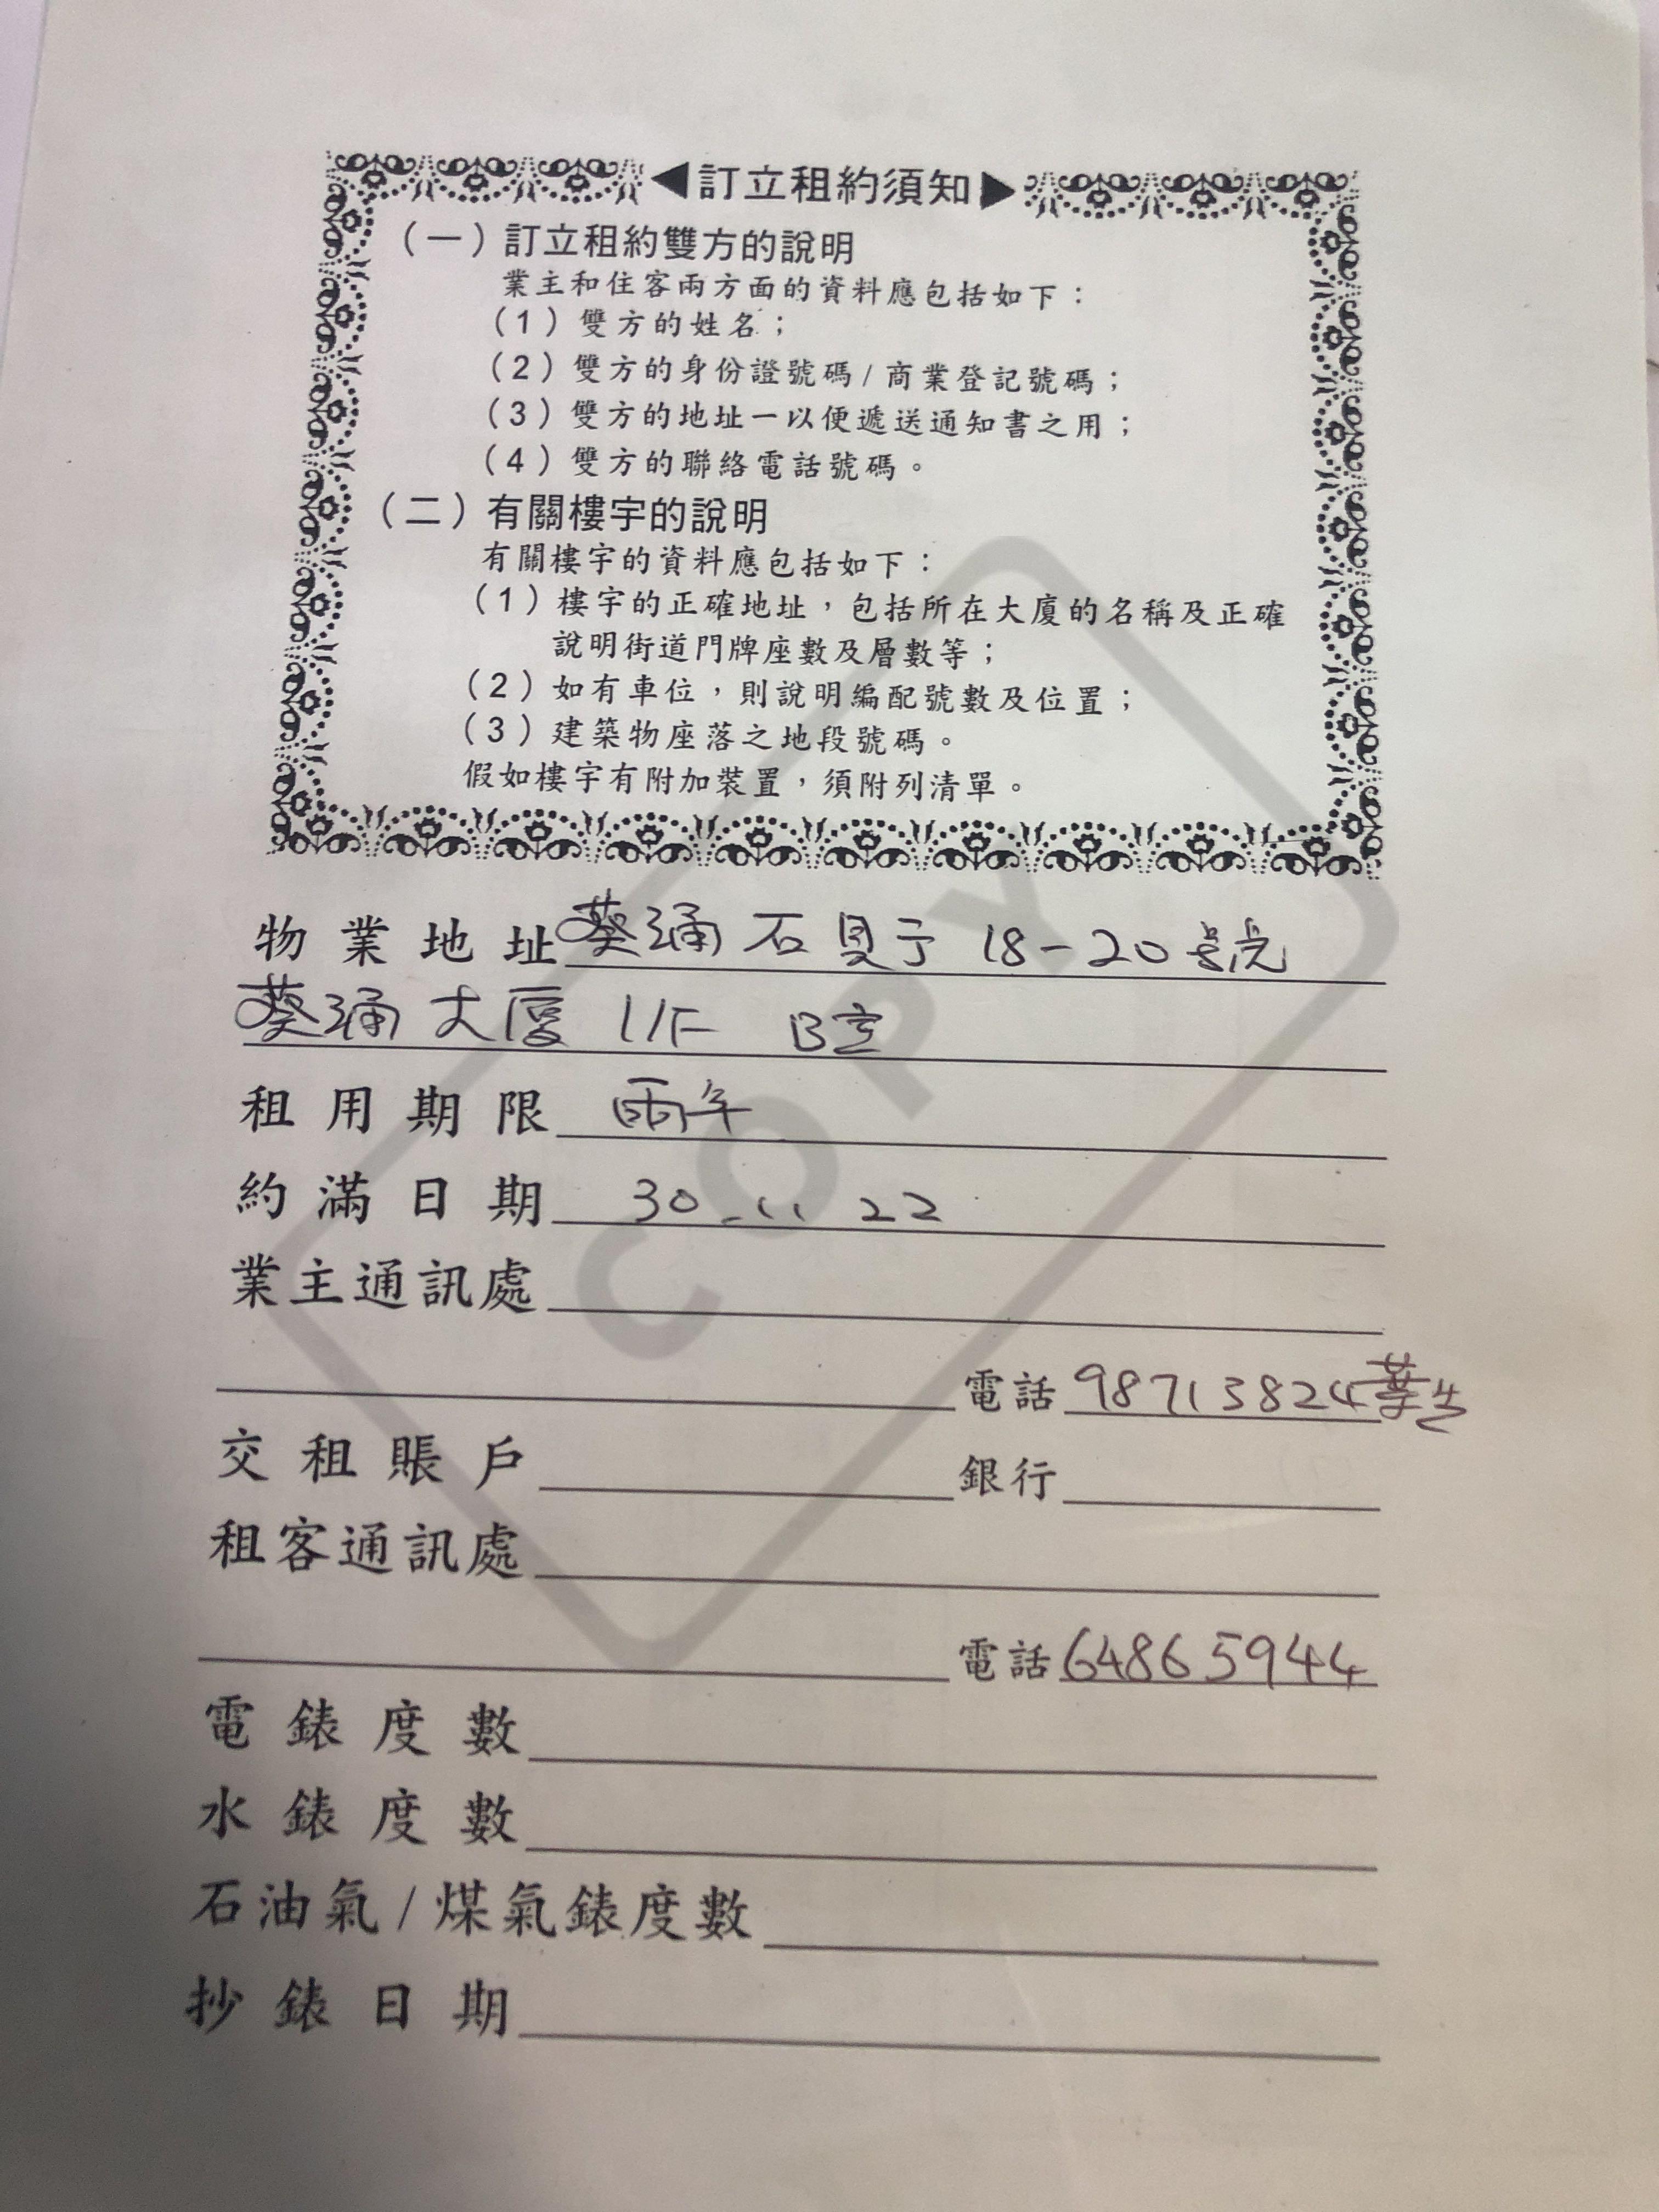 ◀訂立租約須知▶
(一)訂立租約雙方的說明
業主和住客兩方面的資料應包括如下：
(1)雙方的姓名；
(2)雙方的身份證號碼/商業登記號碼；
(3)雙方的地址一以便遞送通知書之用；
(4)雙方的聯絡電話號碼。
(二)有關樓宇的說明
有關樓宇的資料應包括如下：
(1)樓宇的正確地址，包括所在大廈的名稱及正確
說明街道門牌座數及層數等；
(2)如有車位，則說明編配號數及位置；
(3)建築物座落之地段號碼。
假如樓宇有附加裝置，須附列清單。
COPY
物業地址 葵涌石 18-20號
葵涌大廈 1/F B室
租用期限 兩年
約滿日期 30 - 11 22
業主通訊處
電話 98713824 葉生
交租賬戶 銀行
租客通訊處
電話 64865944
電錶度數
水錶度數
石油氣/煤氣錶度數
抄錶日期